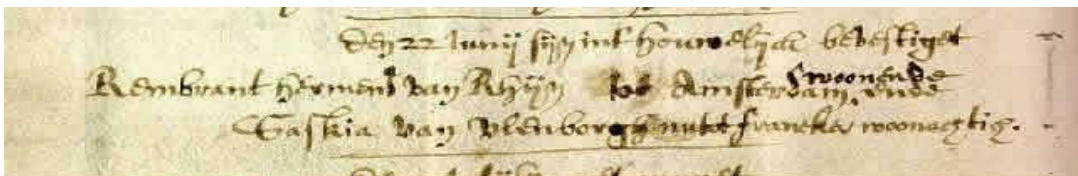 Den 22 Junij sijn int houwelijck bevestiget
Rembrant hermens van Rhijn tot Amsterdam woonende ende
Saskia van Vlenborgh nu tot franeker woonachtig.